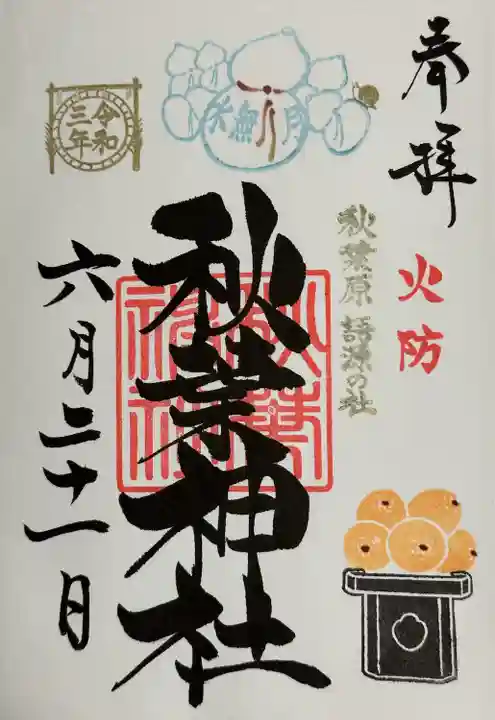 奉拝
火防
秋葉原 語源の社
水無月
秋葉神社
秋葉神社
令和
三年
六月二十一日